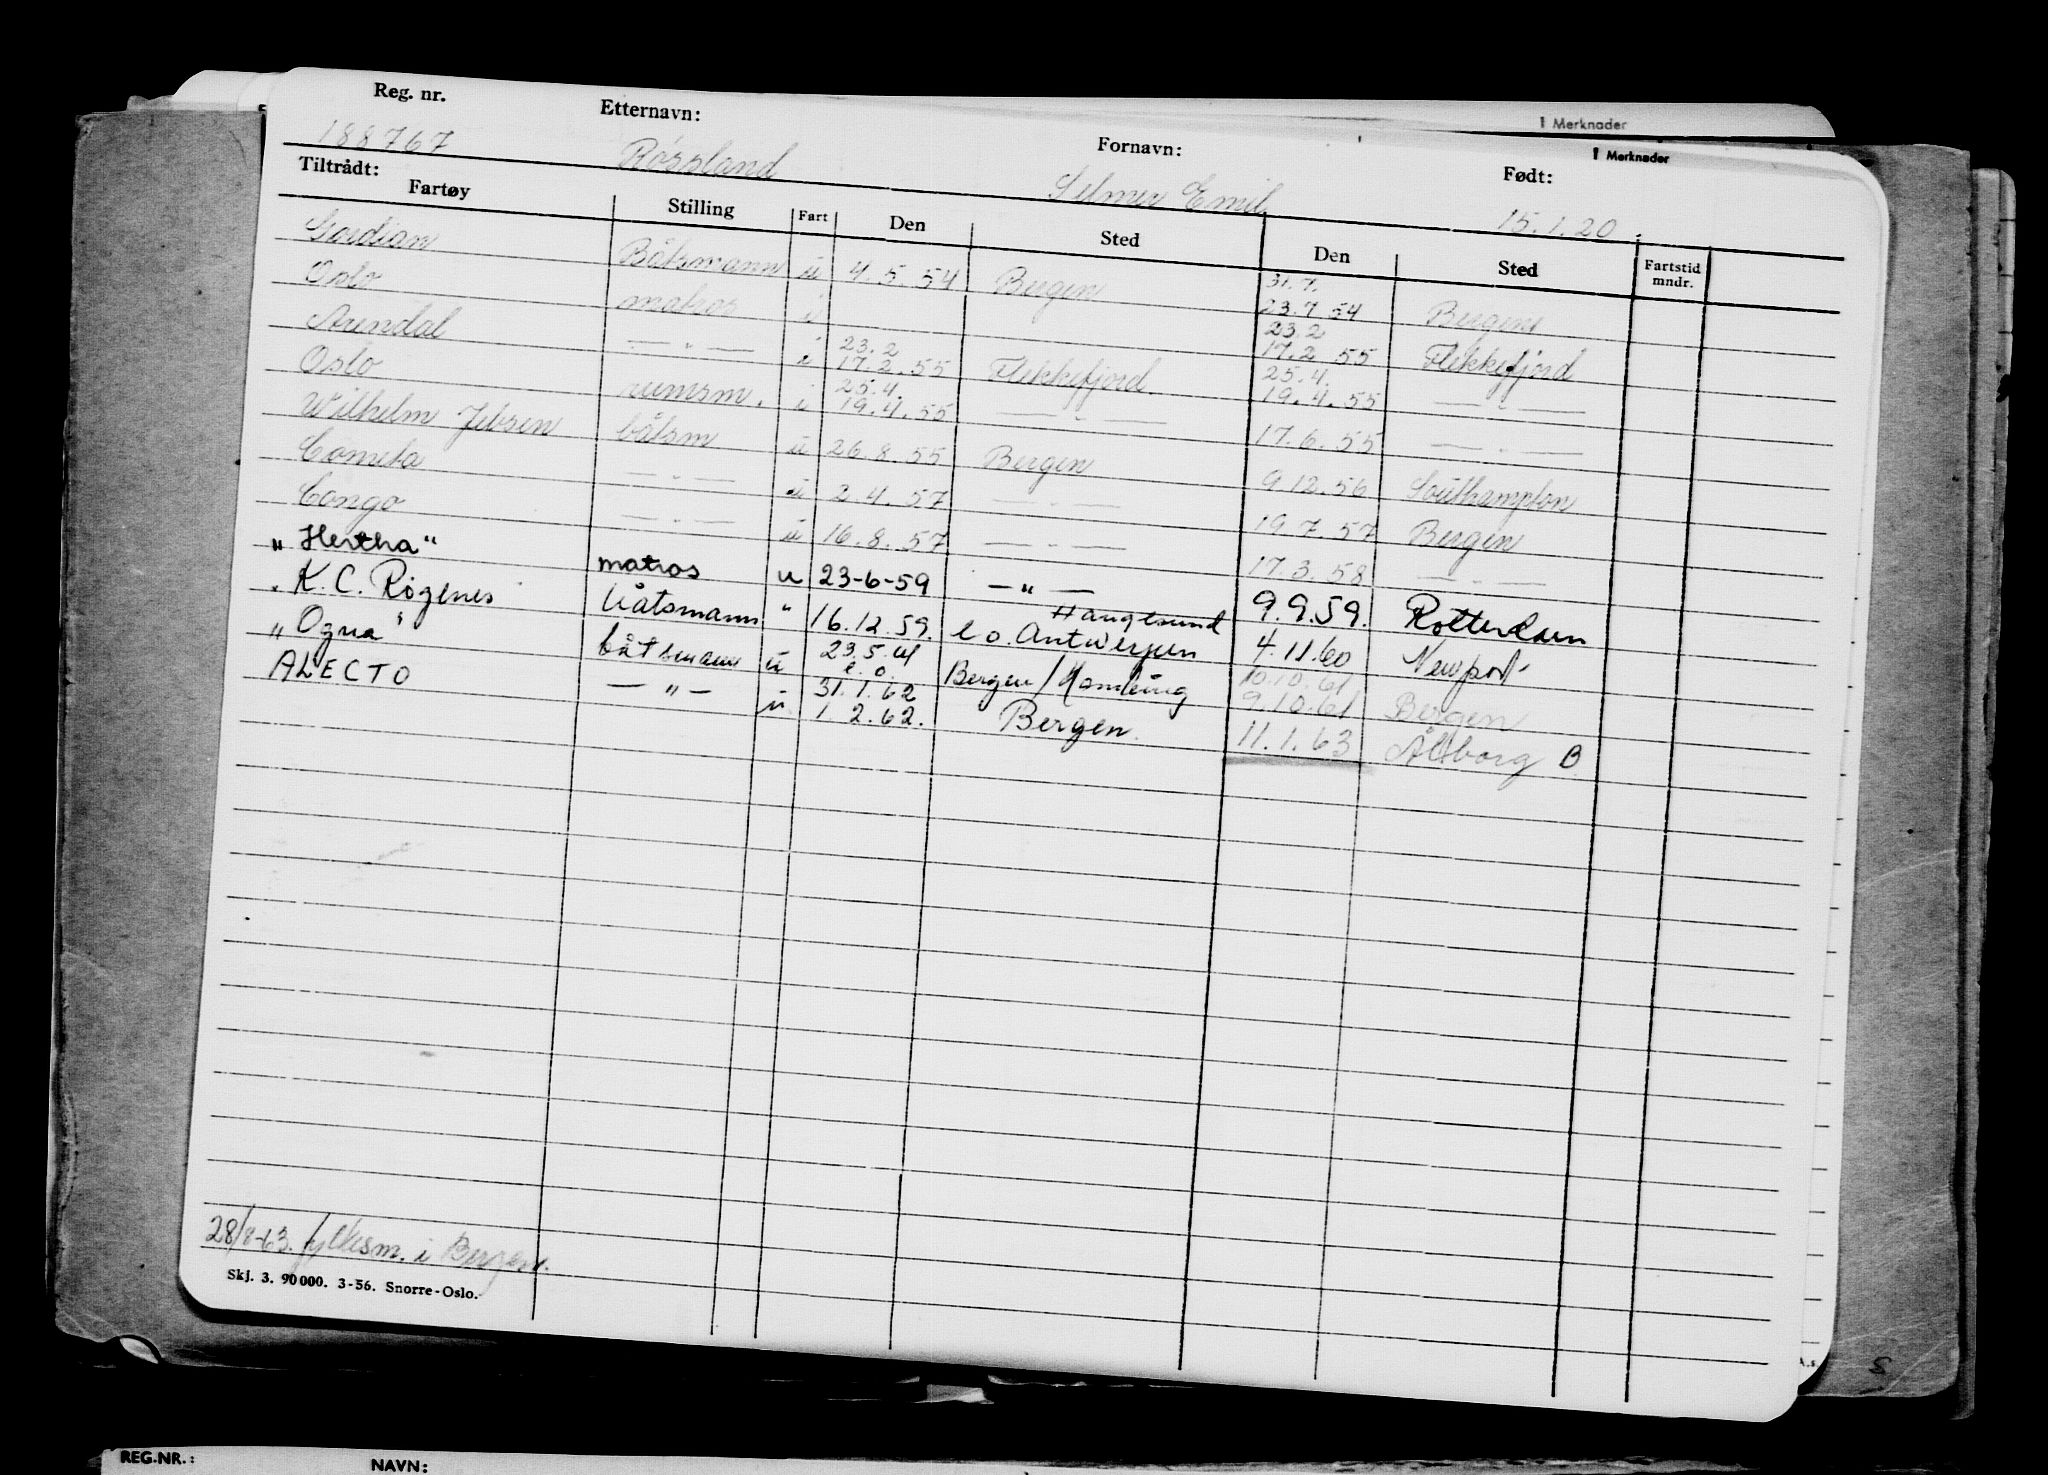 1 Merknader
1 Merknader
Reg. nr. Etternavn: Fornavn: Født:
188767 Røssland Selmer Emil 15.1.20
Tiltrådt:
Fartøy Stilling Fart Den Sted Den Sted Fartstid mndr.
Gordian Båtsmann u 4.5.54 Bergen 31.7. 23.7 54 Bergen
Oslo matros i 23.2 17.2 55 Flekkefjord
Arendal — " — i 23.2 17.2.55 Flekkefjord 25.4. 19.4.55 — " —
Oslo rumsm. i 25.4. 19.4.55 — " — 17.6.55 — " —
Wilhelm Jebsen båtsm u 26.8.55 Bergen 9.12.56 Southampton
Cometa — " — u 2.4.57 — " — 19.7.57 Bergen
Congo — " — u 16.8.57 — " — 17.3.58 — " —
„Hertha" matros u 23-6-59 — " — 9.9.59. Rotterdam
K. C. Rogenes båtsmann " 16.12.59. Haugesund e o. Antwerpen 4.11.60 Newport
„Ogna" båtsmann u 23.5.61 e. o. Bergen/Hamburg 10.10.61 9.10.61 Bergen
ALECTO — " — u 31.1.62 1.2.62. Bergen. 11.1.63 Ålborg B
28/8-63. fylkesm. i Bergen.
Skj. 3. 90 000. 3-56. Snorre-Oslo.
A.s.
S
REG.NR.: NAVN: